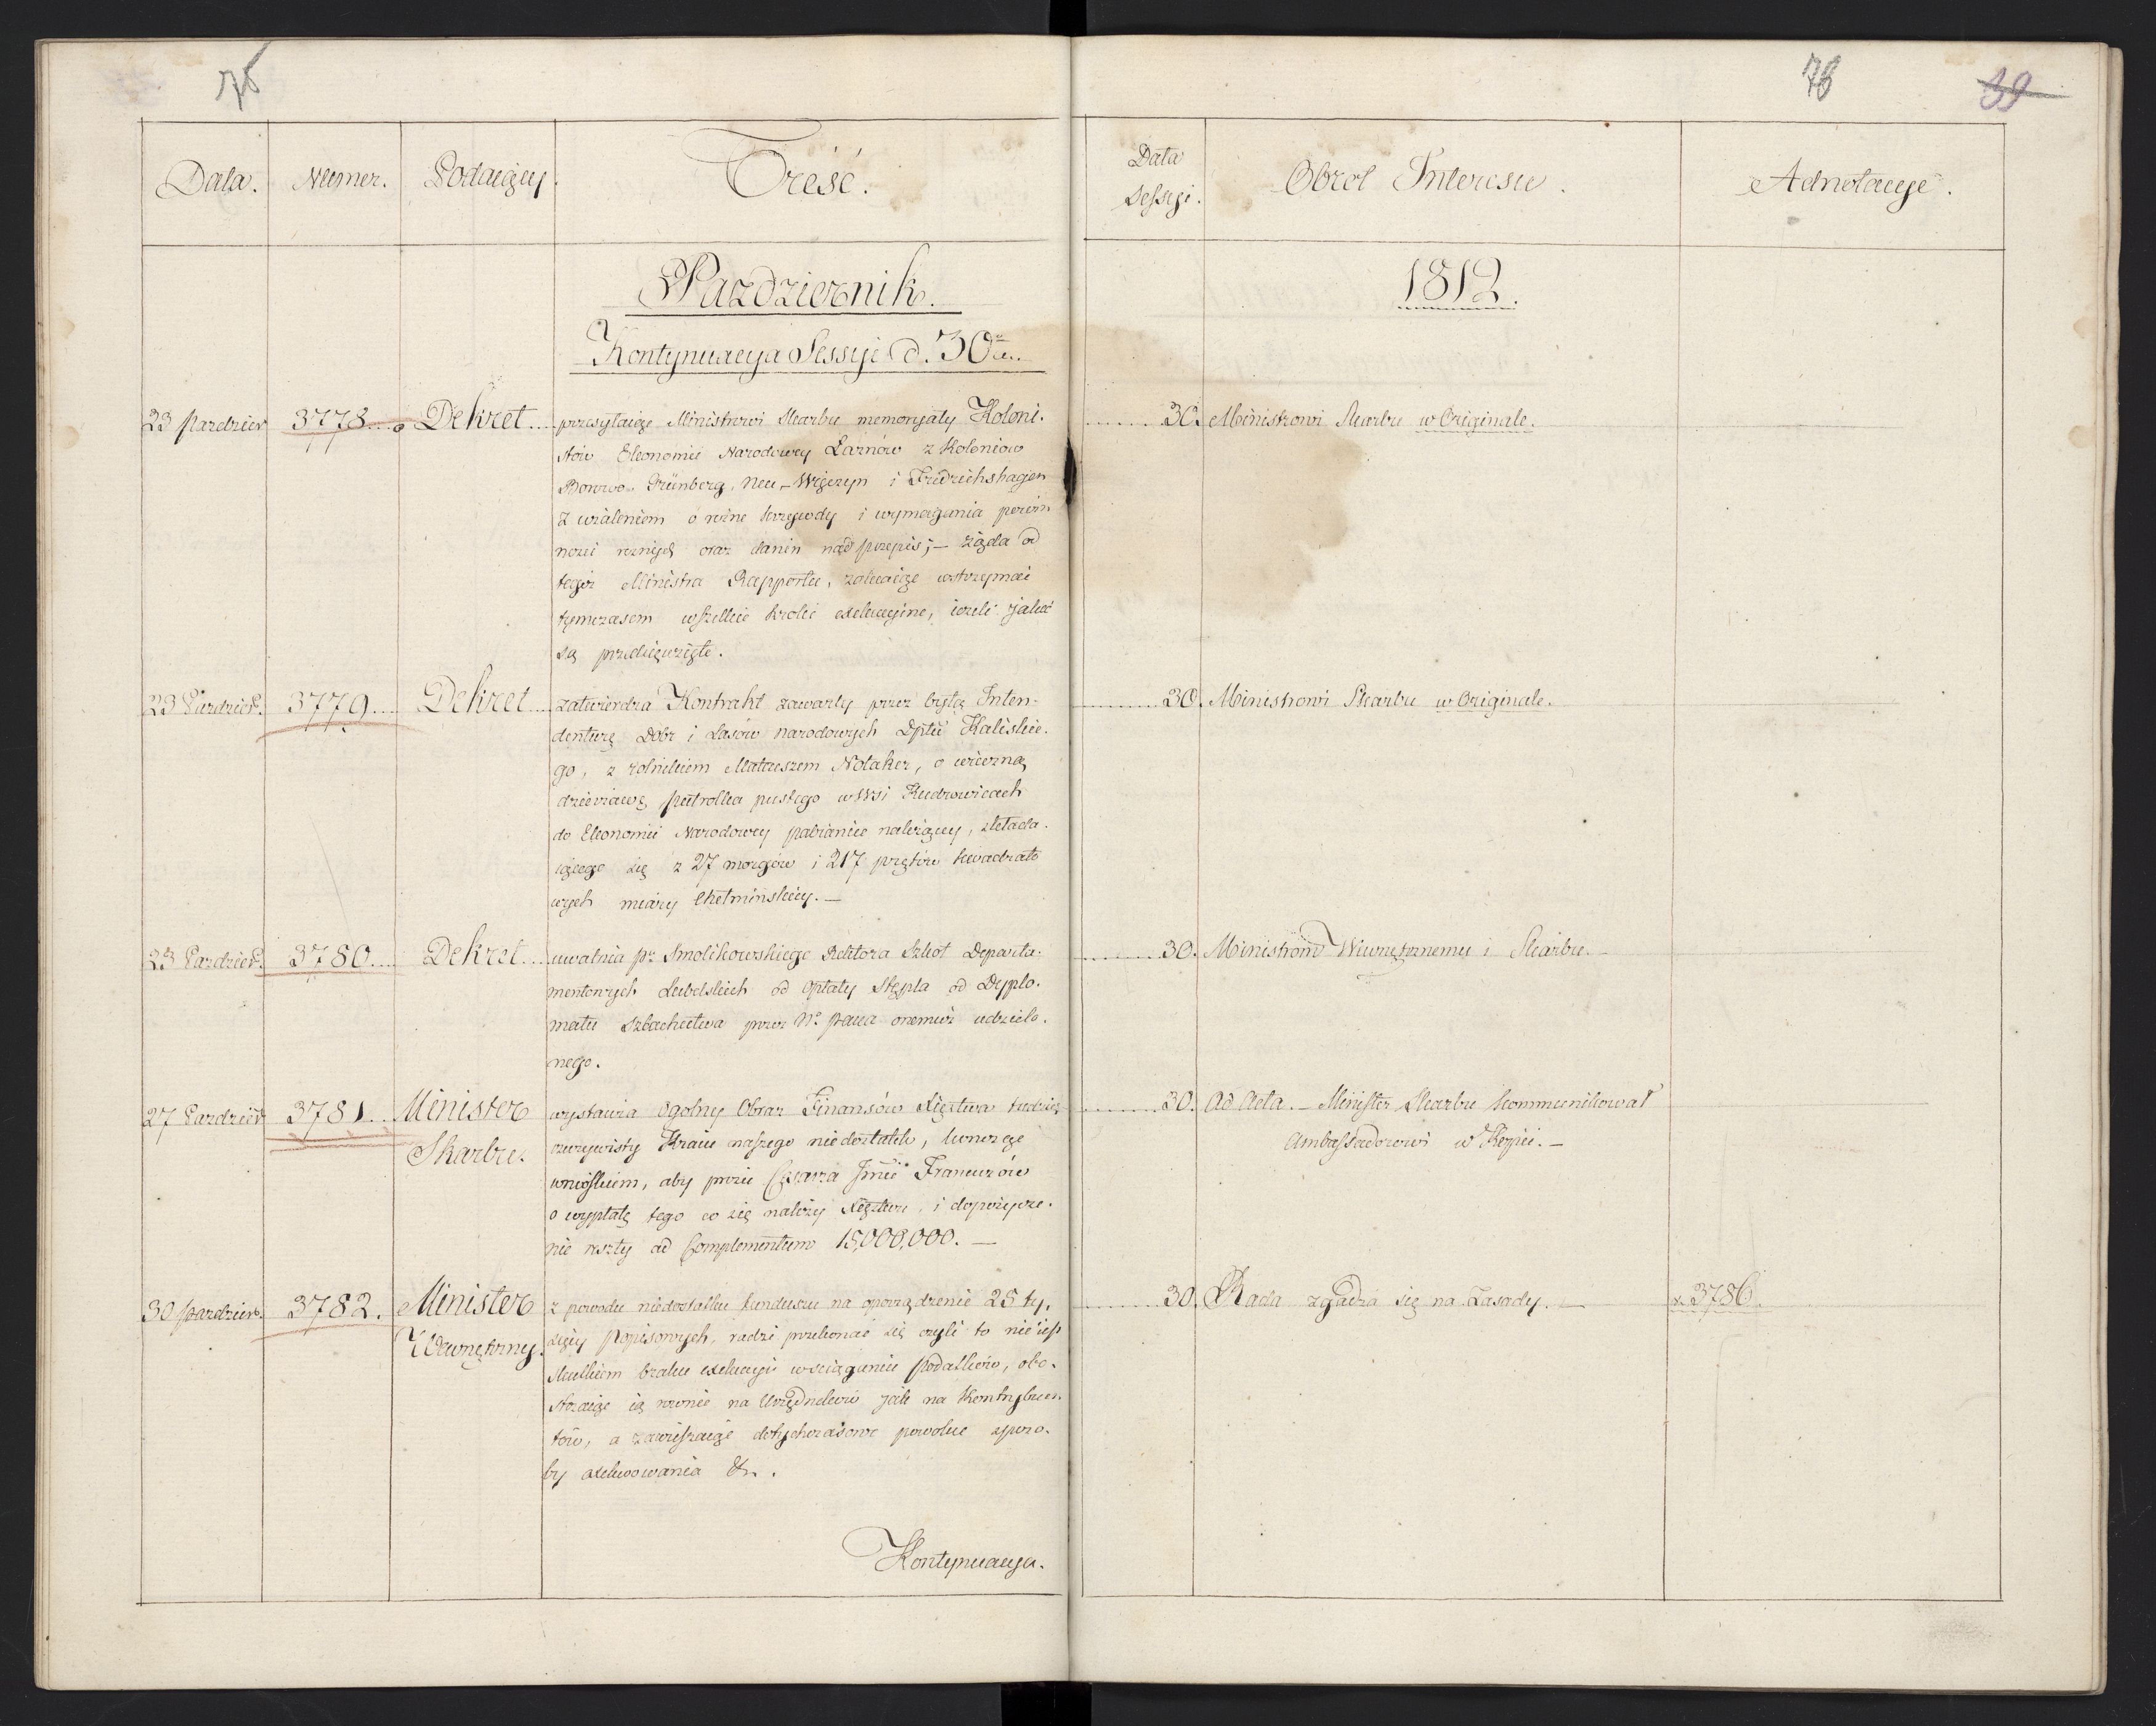 75
76
39
Data.
Numer.
Podaiący.
Treść.
Data
Sessyi.
Obrot Interesu.
Adnotacye.
Pazdziernik.
1812.
Kontynuacya Sessyi d. 30
23 Pazdzier
3778
Dekret
przesyłaiąc Ministrowi Skarbu memoryały Koloni-
stów Ekonomii Narodowey Łaznów z Koloniow
Grünberg, Neu-Wiączyn i Fridrichshagen
z użaleniem o rożne krzywdy i wymagania powin
ności rożnych oraz danin nad przepis; - żąda od
tegoż Ministra Rapportu, zalecaiąc wstrzymać
tymczasem wszelkie kroki exekucyine, ieżeli jakie
są przedsięwzięte.
30. Ministrowi Skarbu w Originale.
23 Pazdzier.
3779
Dekret
zatwierdza Kontrakt zawarty przez byłą Inten-
denturę Dobr i Lasów narodowych Dptu Kaliskie-
go, z rolnikiem Mateuszem Notaker, o wieczną
dzierżawę pustego w Wsi Kudrowicach
do Ekonomii Narodowey pabianice należącey, składa-
iącego się z 27 morgów i 217 prętów kwadrato
wych miary Chełmińskiey. -
30. Ministrowi Skarbu w Originale.
23 Pazdzier.
3780
Dekret
uwalnia pa Smolikowskiego Rektora Szkoł Departa-
mentowych Lubelskich od opłaty Stępla od Dyplo-
matu szlachectwa przez No pana onemuż udzielo-
nego.
30. Ministrom Wewnętrznemu i Skarbu.
27 Pazdzier
3781
Minister
Skarbu.
wystawia Ogolny Obraz Finansów Xięstwa tudzież
rzeczywisty Kraiu naszego niedostatek, kończąc
wnioskiem, aby prosić Cesarza Jmci Francuzów
o wypłatę tego co się należy Xięstwu, i dopożycze-
nie reszty ad Complementum 15,000,000. -
30. Ad Acta. - Minister Skarbu kommunikował
Ambassadorowi w Kopii. -
30 pazdzier.
3782.
Minister
Wewnętrzny.
z powodu niedostatku funduszu na oporządzenie 25 ty-
sięcy popisowych, radzi przekonać się czyli to nie iest
skutkiem braku exekucyi w ściąganiu podatków, obo-
strzaiąc ią rownie na Urzędników jak na Kontrybuen
tów, a zawieszaiąc dotychczasowe powolne sposo-
by exekwowania &c.
30. Rada zgadza się na Zasady. -
3786.
Kontynuacya.